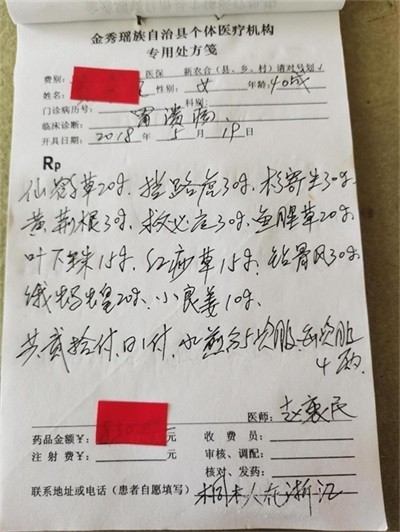 金秀瑶族自治县个体医疗机构
专用处方笺
费别: 医保 新农合(县、乡、村)请对号划√
姓名: 性别: 女 年龄: 40岁
门诊病历号: 科别:
临床诊断: 胃溃疡
开具日期: 2018 年 5 月 19 日
Rp
仙鹤草20g. 挡路虎30g. 杉寄生30g
黄荆根30g. 救必应30g. 鱼腥草20g
叶下珠15g. 红 草15g. 钻骨风30g
饿蚂蝗20g. 小良姜10g.
共贰拾付, 日1付, 水煎分5次服. 每次服
4两.
医师: 赵
药品金额¥: 元 收 费 员:
注 射 费¥: 元 审核、调配:
核对、发药:
联系地址或电话(患者自愿填写) 人在浙江